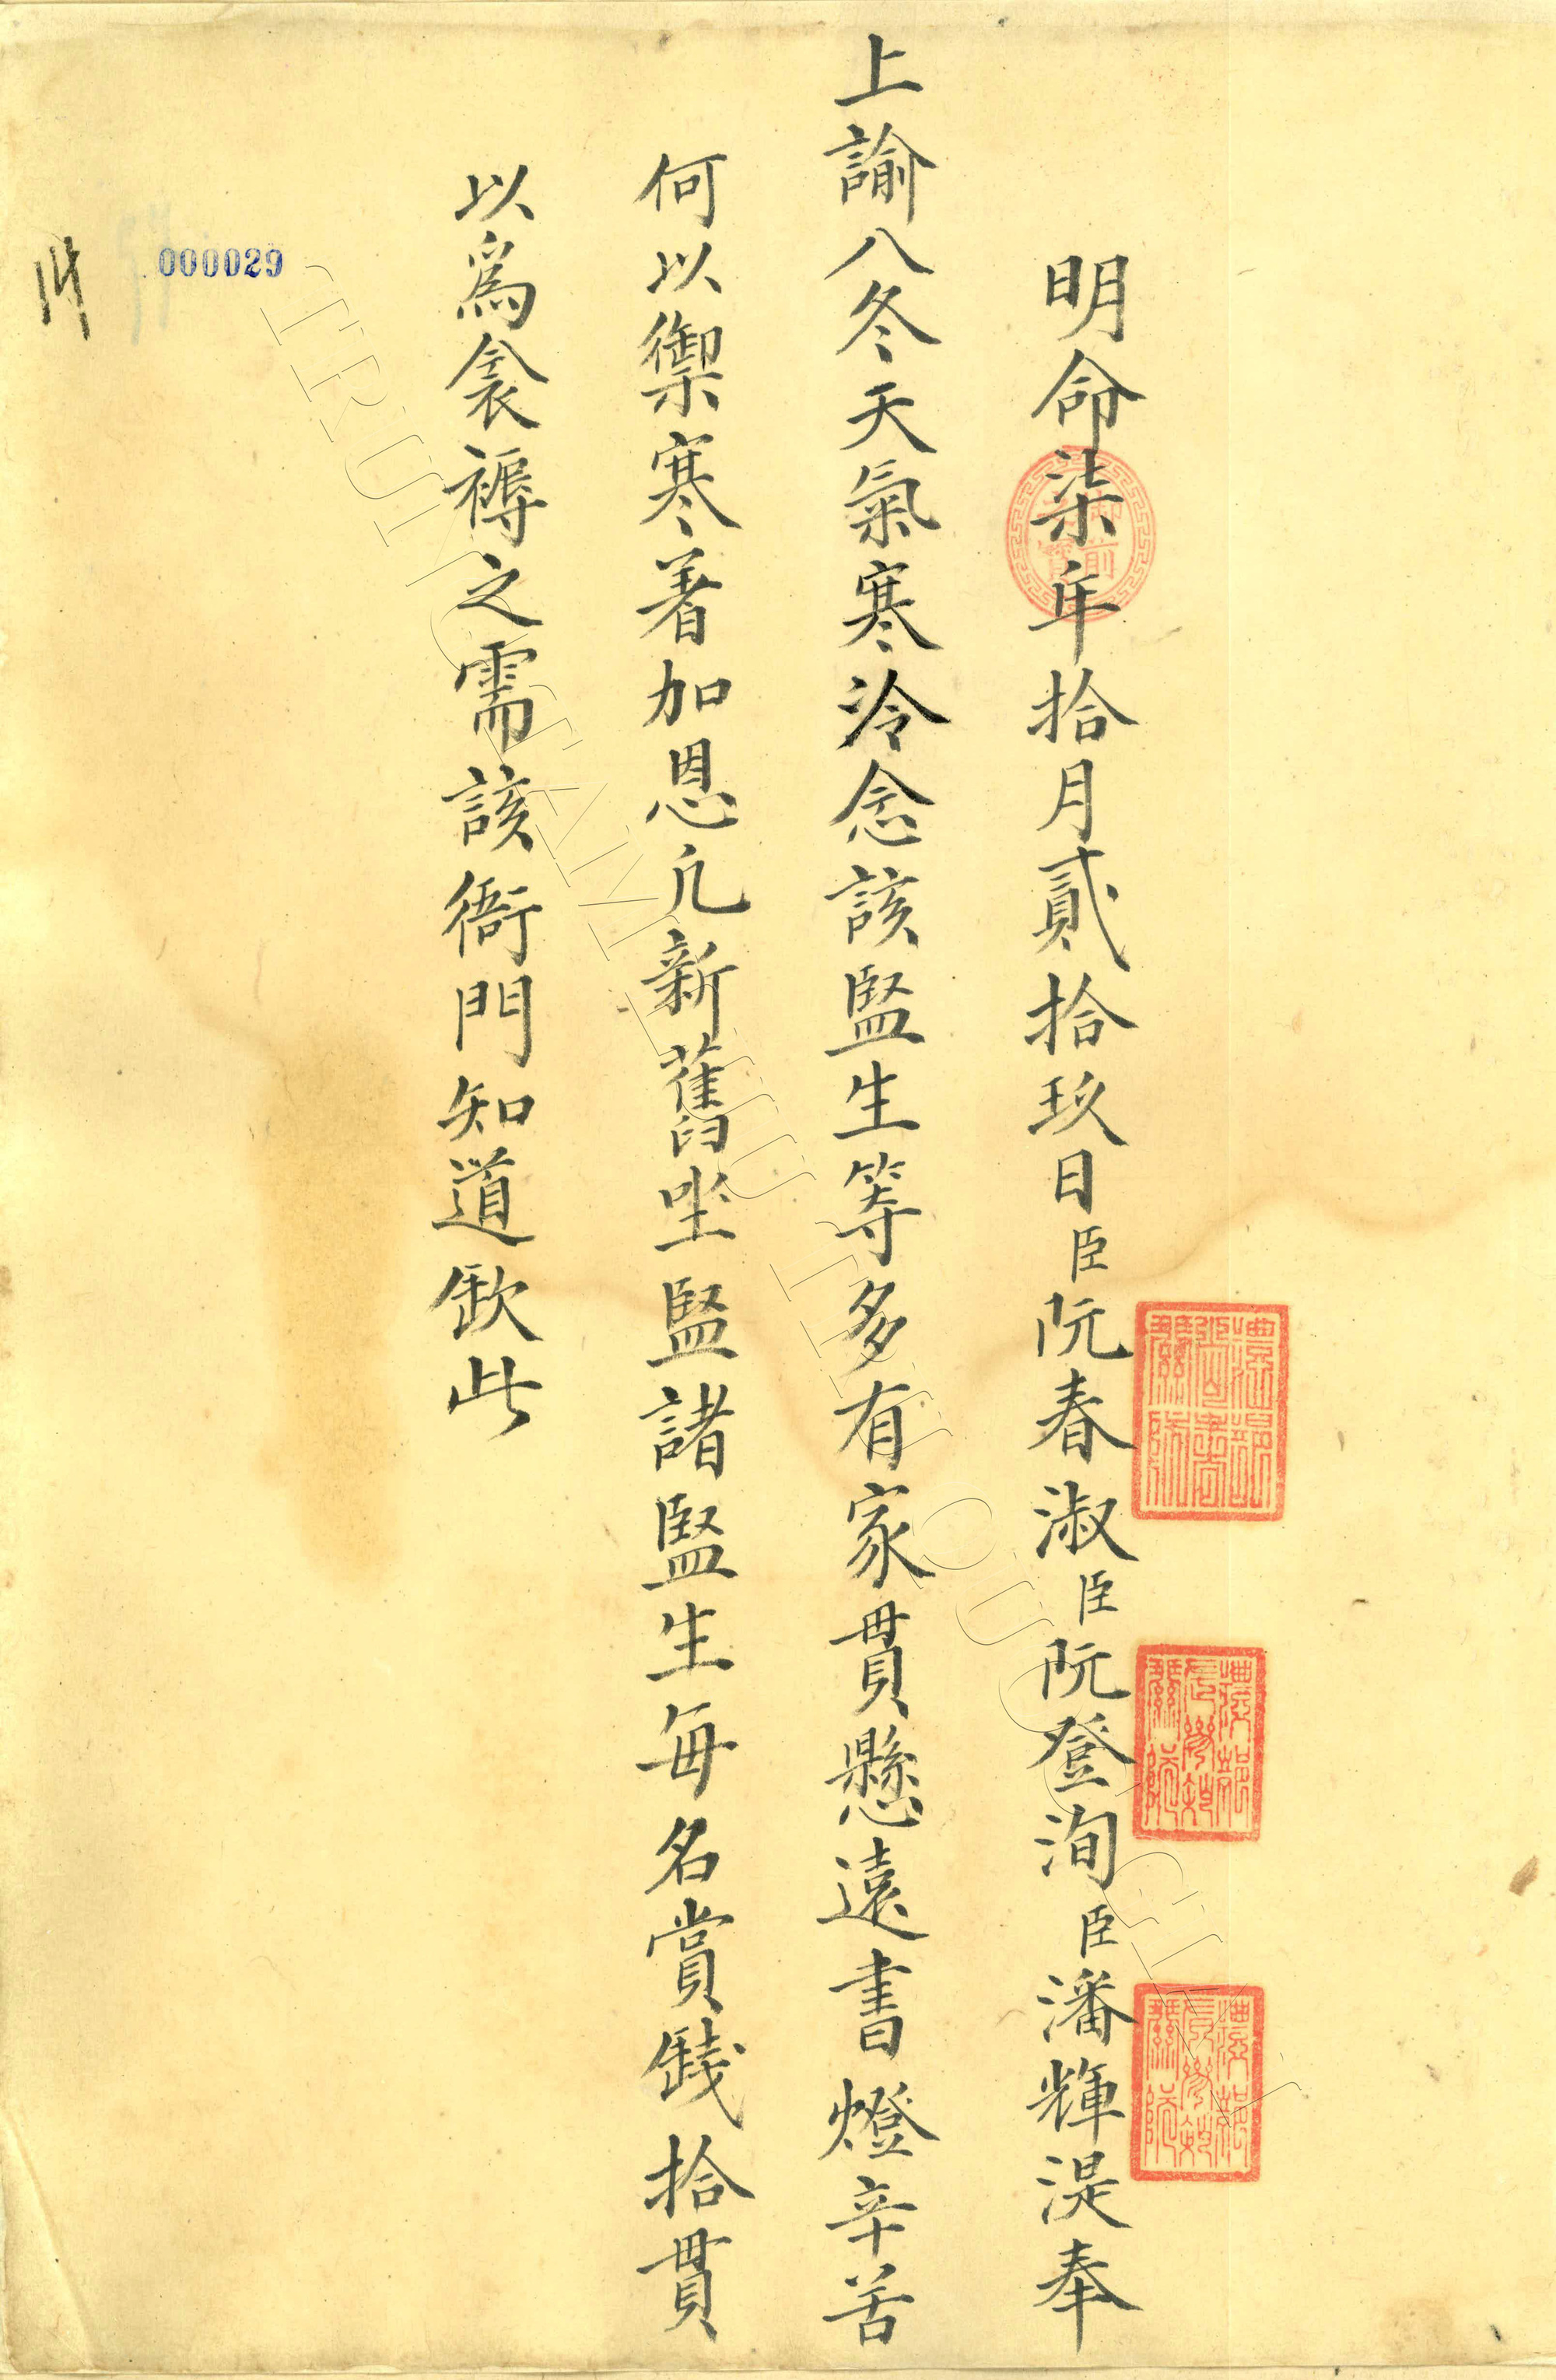 明命柒年拾月貳拾玖日臣阮春淑臣阮登洵臣潘輝湜奉
上諭八冬天氣寒冷念該監生等多有家貫懸遠書燈辛苦
何以禦寒著加恩凡新舊坐監諸監生每名賞錢拾貫
以爲衾褥之需該衙門知道欽此
000029